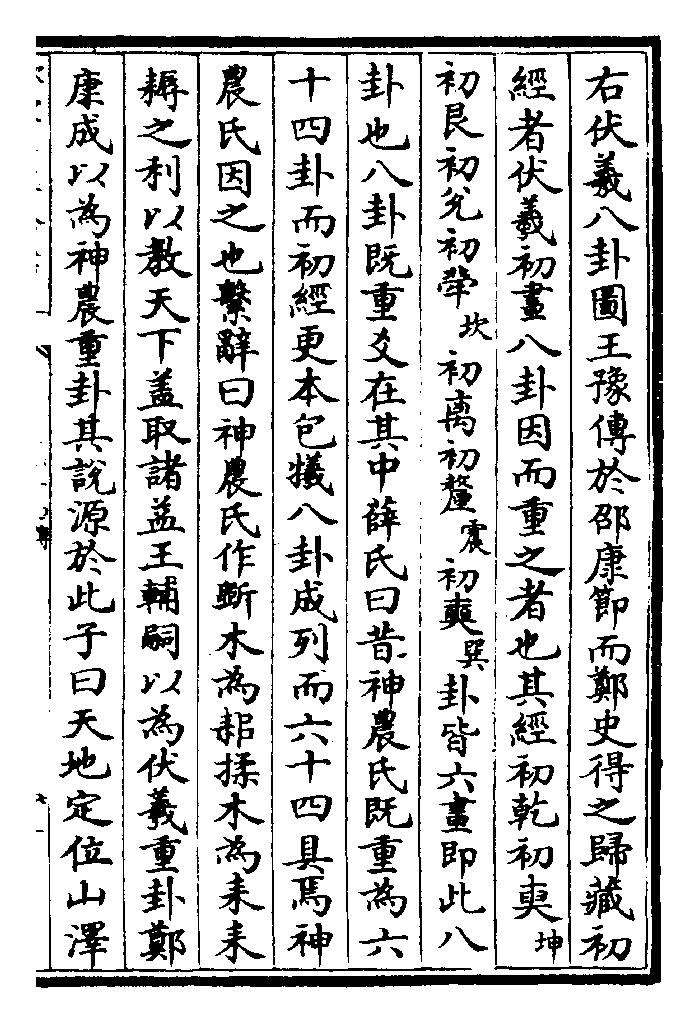 右伏羲八卦圖王豫傳於邵康節而鄭史得之歸藏初
經者伏羲初畫八卦因而重之者也其經初乾初奭坤
初艮初兊初犖坎初离初釐震初奭巽卦皆六畫即此八
卦也八卦既重爻在其中薛氏曰昔神農氏既重為六
十四卦而初經更本包犧八卦成列而六十四具焉神
農氏因之也繫辭曰神農氏作斵木為耜揉木為耒耒
耨之利以教天下盖取諸益王輔嗣以為伏羲重卦鄭
康成以為神農重卦其說源於此子曰天地定位山澤